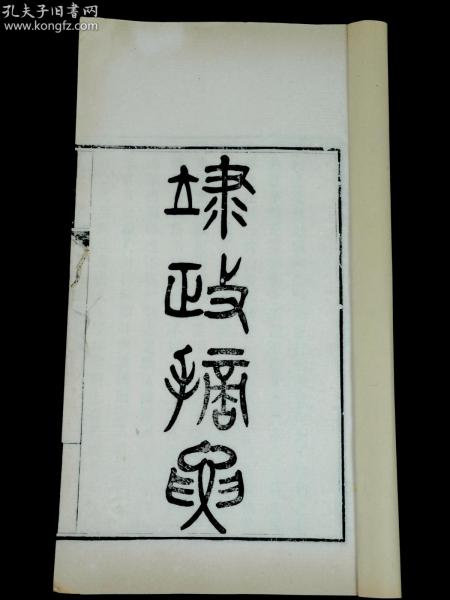 孔夫子旧书网
www.kongfz.com
䇐政摘要